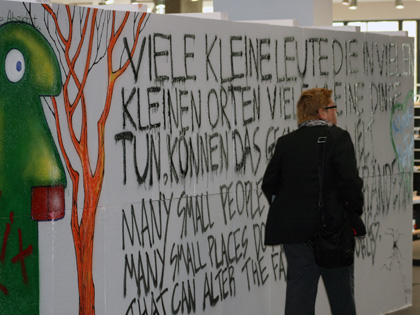 VIELE KLEINE LEUTE DIE IN VIELEN
KLEINEN ORTEN VIELE KLEINE DINGE
TUN, KÖNNEN DAS
MANY SMALL PEOPLE
MANY SMALL PLACES DO
THAT CAN ALTER THE FA